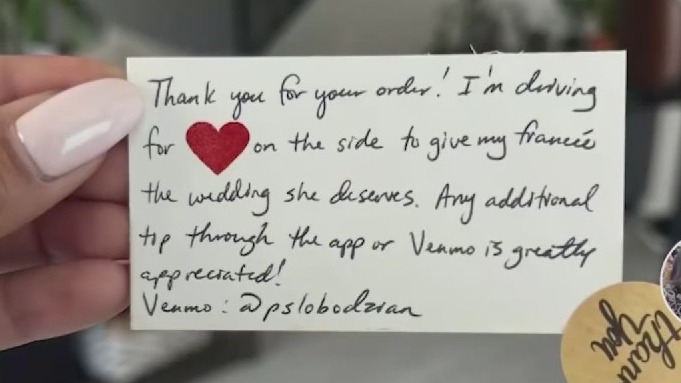 Thank you for your order! I'm driving
for ❤ on the side to give my francée
the wedding she deserves. Any additional
tip through the app or Venmo is greatly
appreciated!
Venmo: @pslobodzian
thank
you